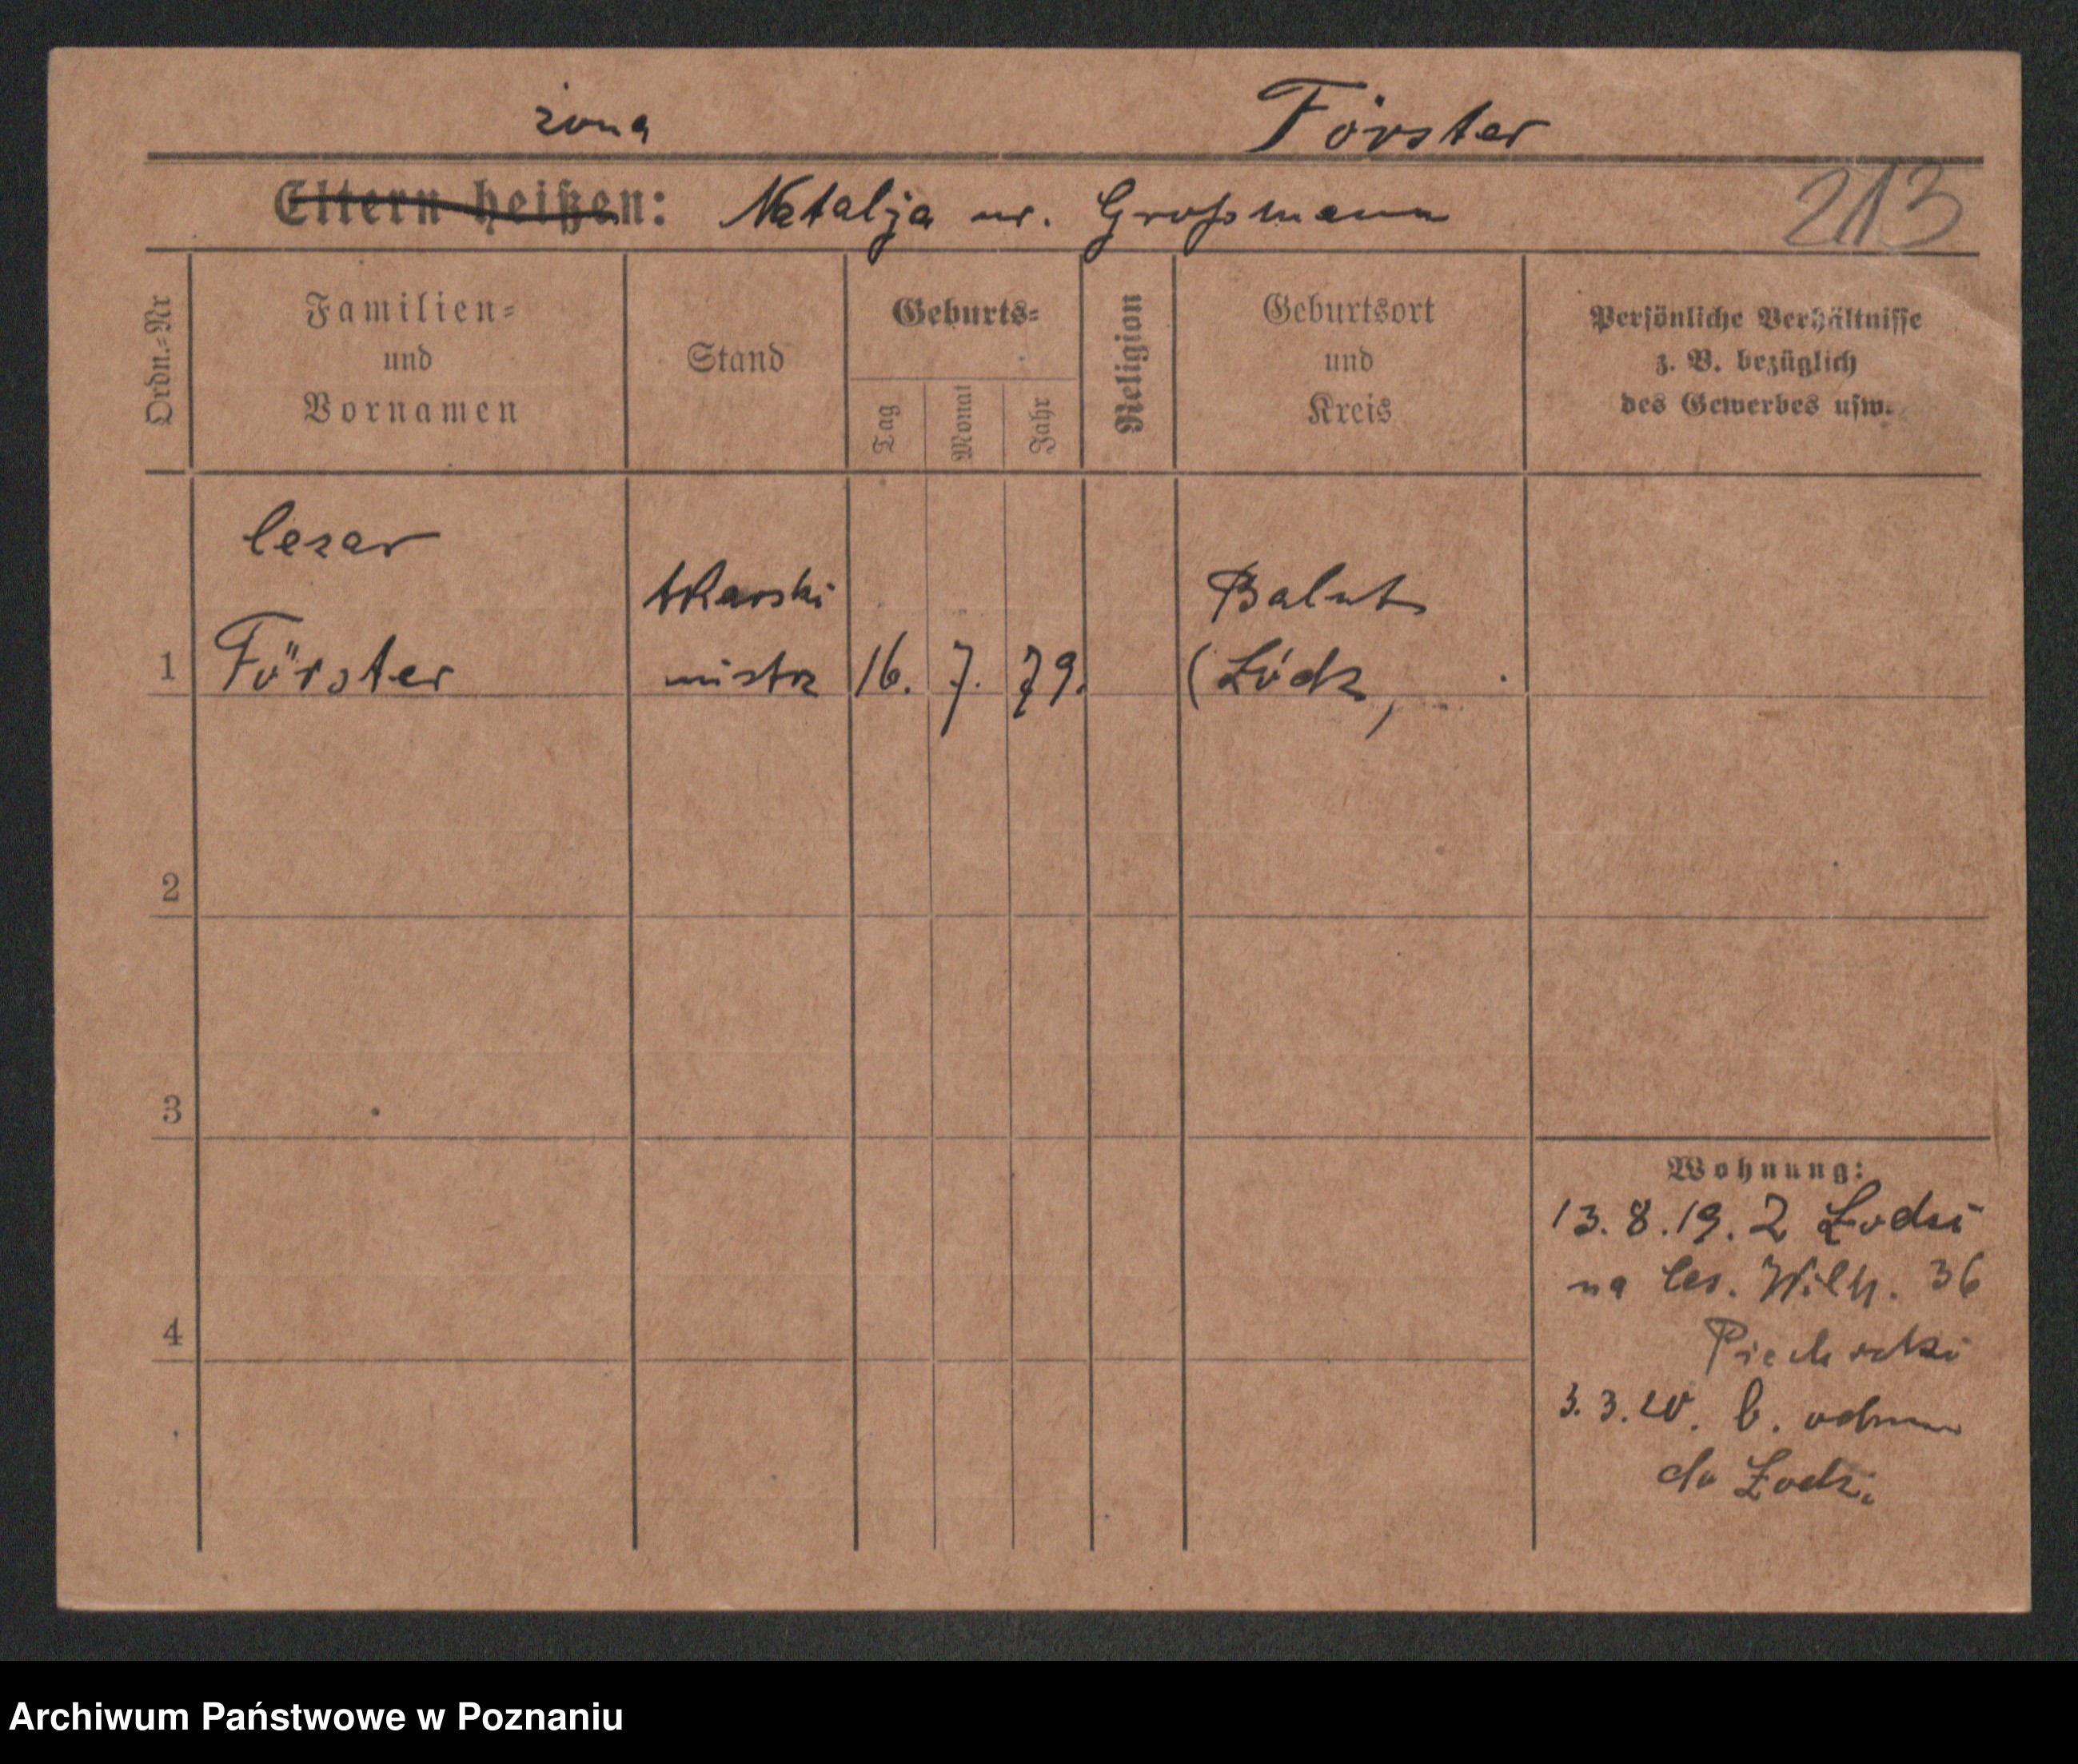 żona Förster
Eltern heißen: Natalja ur. Großmann 213
Ordn.-Nr
Familien-
und
Vornamen
Stand
Geburts-
Tag
Monat
Jahr
Religion
Geburtsort
und
Kreis
Persönliche Verhältnisse
z. B. bezüglich
des Gewerbes usw.
Cezar
tkarski
Baluty
1 Förster mistrz 16. 7. 79. (Łódz)
2
3
Wohnung:
13.8.19. z Łodzi
na Ces. Wilh. 36
4
3.3.20. b. odm.
do Łodzi.
Archiwum Państwowe w Poznaniu